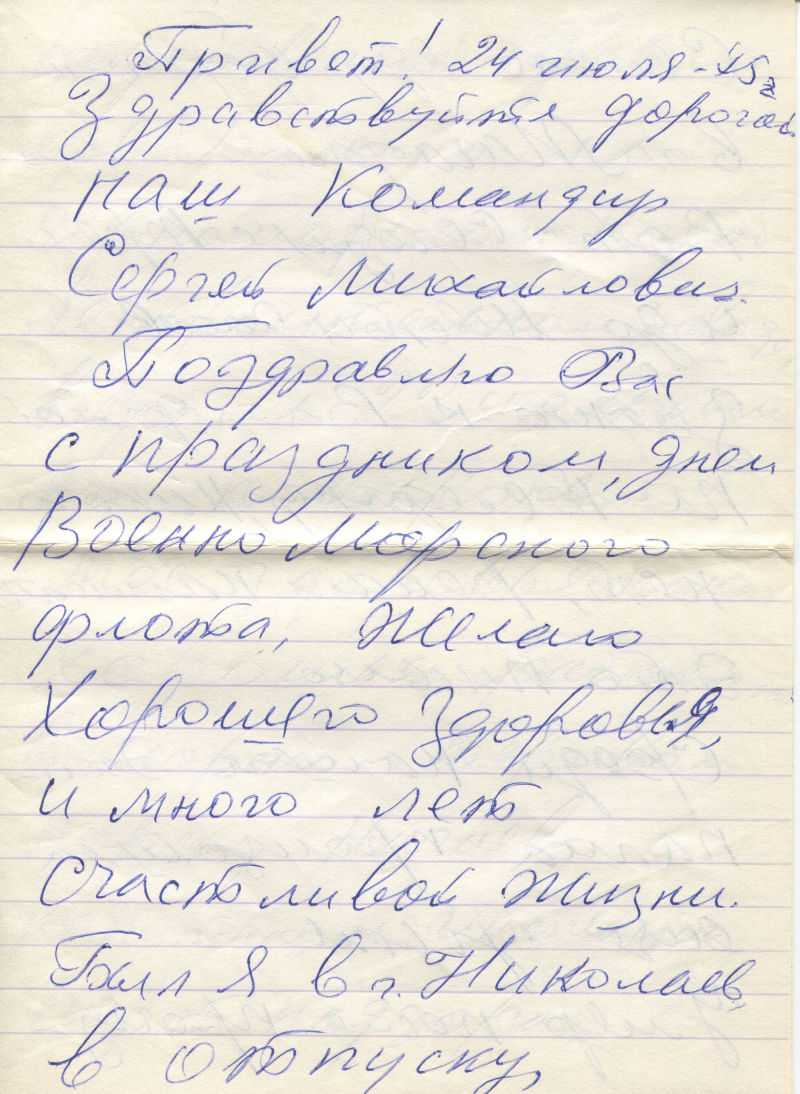 Привет! 24 июля - 75 г
Здравствуйте дорогой
наш Командир
Сергей Михайлович.
Поздравляю Вас
с праздником, днем
Военно Морского
флота, желаю
Хорошего Здоровья,
и много лет
счастливой жизни.
Был я в г. Николаев,
в отпуску,